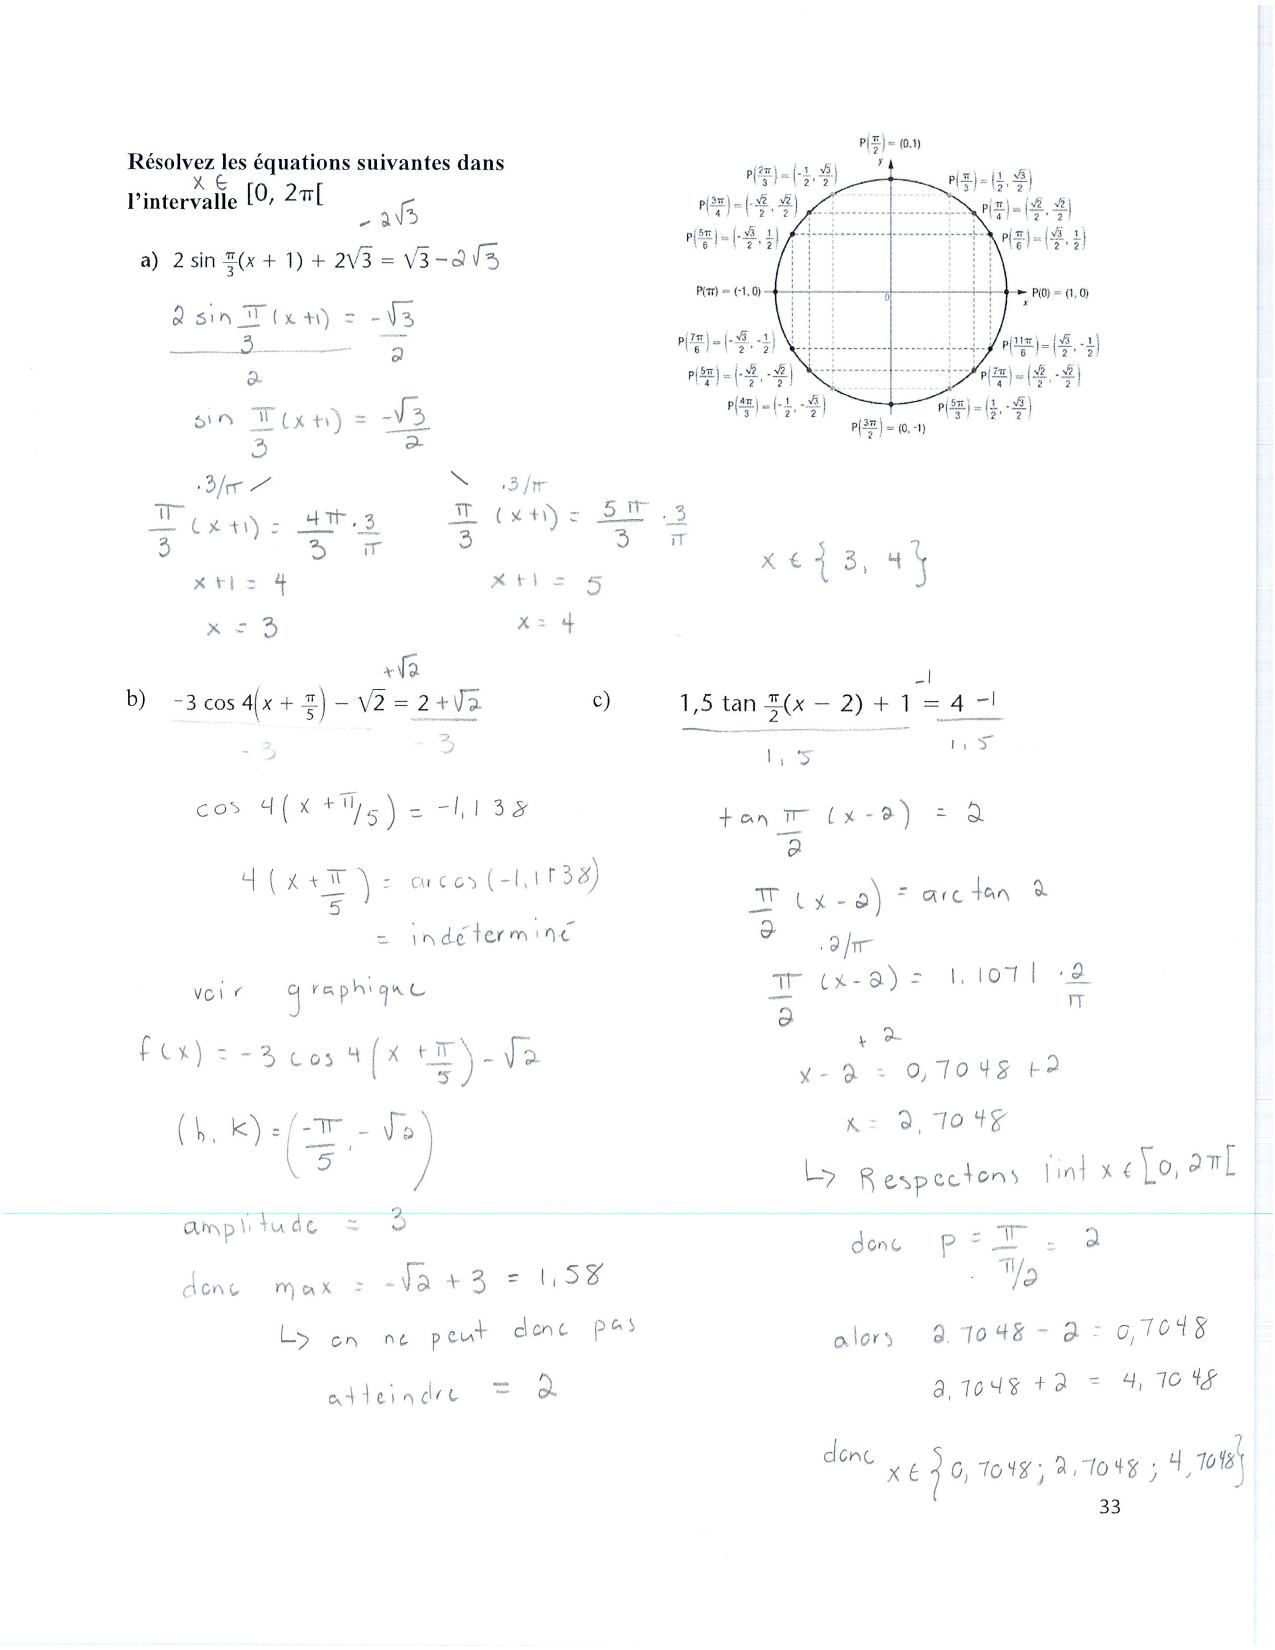 Résolvez les équations suivantes dans
x ∈
l'intervalle [0, 2π[
P(π/2) = (0,1)
y
P(2π/3) = (-1/2, √3/2)
P(π/3) = (1/2, √3/2)
P(3π/4) = (-√2/2, √2/2)
P(π/4) = (√2/2, √2/2)
P(5π/6) = (-√3/2, 1/2)
P(π/6) = (√3/2, 1/2)
P(π) = (-1, 0)
0
P(0) = (1, 0)
x
P(7π/6) = (-√3/2, -1/2)
P(11π/6) = (√3/2, -1/2)
P(5π/4) = (-√2/2, -√2/2)
P(7π/4) = (√2/2, -√2/2)
P(4π/3) = (-1/2, -√3/2)
P(5π/3) = (1/2, -√3/2)
P(3π/2) = (0, -1)
- 2√3
a) 2 sin π/3(x + 1) + 2√3 = √3 - 2√3
2 sin π/3 (x+1) = -√3
2 2
sin π/3 (x+1) = -√3/2
.3/π .3/π
π/3 (x+1) = 4π/3 · 3/π π/3 (x+1) = 5π/3 · 3/π
x+1 = 4 x+1 = 5
x = 3 x = 4
x ∈ {3, 4}
+√2
b) -3 cos 4(x + π/5) - √2 = 2 + √2
-3 -3
cos 4(x + π/5) = -1,138
4(x + π/5) = arccos(-1,1138)
= indéterminé
voir graphique
f(x) = -3 cos 4(x + π/5) - √2
(h, k) = (-π/5, -√2)
amplitude = 3
donc max = -√2 + 3 = 1,58
↳ on ne peut donc pas
atteindre = 2
-1
c) 1,5 tan π/2(x - 2) + 1 = 4 -1
1,5 1,5
tan π/2 (x-2) = 2
π/2 (x-2) = arc tan 2
.2/π
π/2 (x-2) = 1.1071 · 2/π
+ 2
x - 2 = 0,7048 + 2
x = 2,7048
↳ Respectons l'int x ∈ [0, 2π[
donc p = π/π/2 = 2
alors 2.7048 - 2 = 0,7048
2,7048 + 2 = 4,7048
donc x ∈ {0,7048; 2,7048; 4,7048}
33